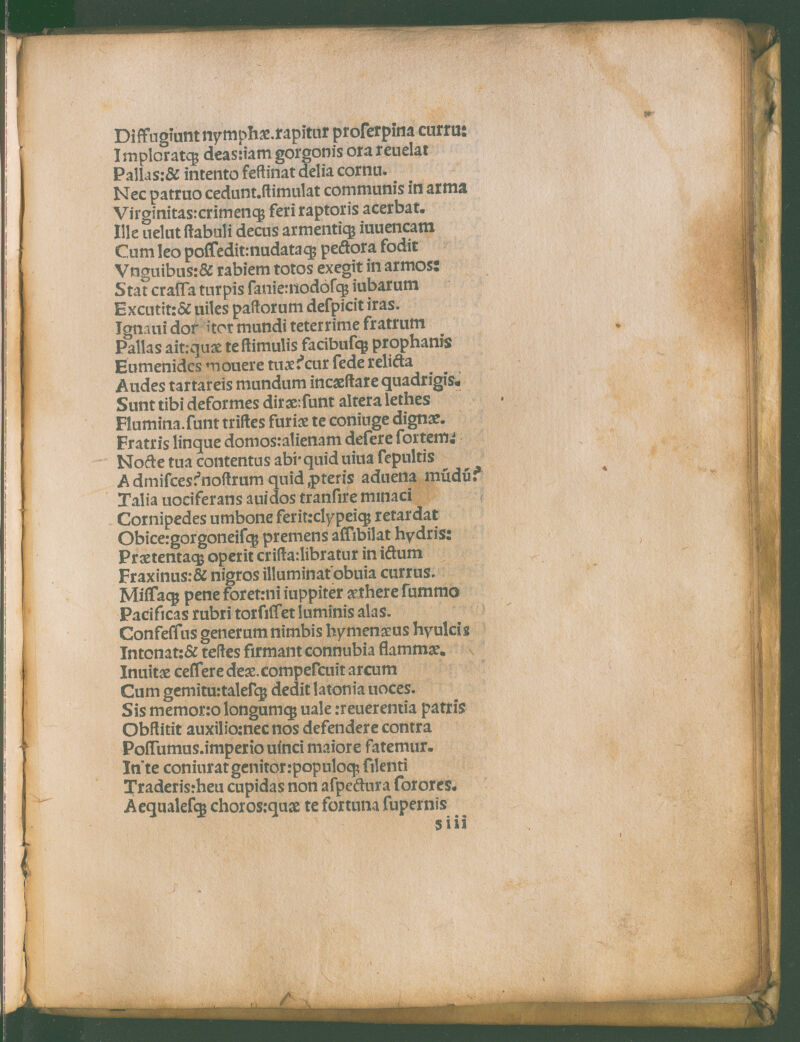 Diffugiunt nymphæ.rapitur proſerpina curru:
Imploratqꝫ deas:iam gorgonis ora reuelat
Pallas:& intento feſtinat delia cornu.
Nec patruo cedunt.ſtimulat communis in arma
Virginitas:crimenqꝫ feri raptoris acerbat.
Ille uelut ſtabuli decus armentiqꝫ iuuencam
Cum leo poſſedit:nudataqꝫ pectora fodit
Vnguibus:& rabiem totos exegit in armos:
Stat craſſa turpis ſanie:nodoſqꝫ iubarum
Excutit:& uiles paſtorum deſpicit iras.
Ignaui domitor mundi teterrime fratrum
Pallas ait:quæ te ſtimulis facibuſqꝫ prophanis
Eumenides mouere tuæ?cur ſede relicta
Audes tartareis mundum incæſtare quadrigis.
Sunt tibi deformes diræ:ſunt altera lethes
Flumina.ſunt triſtes furiæ te coniuge dignæ.
Fratris linque domos:alienam deſere ſortem:
Nocte tua contentus abi·quid uiua ſepultis
Admiſces?noſtrum quid ꝓteris aduena mūdū?
Talia uociferans auidos tranſire minaci
Cornipedes umbone ferit:clypeiqꝫ retardat
Obice:gorgoneiſqꝫ premens aſſibilat hydris:
Prætentaqꝫ operit criſta:libratur in ictum
Fraxinus:& nigros illuminat obuia currus.
Miſſaqꝫ pene foret:ni iuppiter æthere ſummo
Pacificas rubri torſiſſet luminis alas.
Confeſſus generum nimbis hymenæus hyulcis
Intonat:& teſtes firmant connubia flammæ.
Inuitæ ceſſere deæ.compeſcuit arcum
Cum gemitu:taleſqꝫ dedit latonia uoces.
Sis memor:o longumqꝫ uale:reuerentia patris
Obſtitit auxilio:nec nos defendere contra
Poſſumus.imperio uinci maiore fatemur.
In te coniurat genitor:populoqꝫ ſilenti
Traderis:heu cupidas non aſpectura ſorores.
Aequaleſqꝫ choros:quæ te fortuna ſupernis
s iii